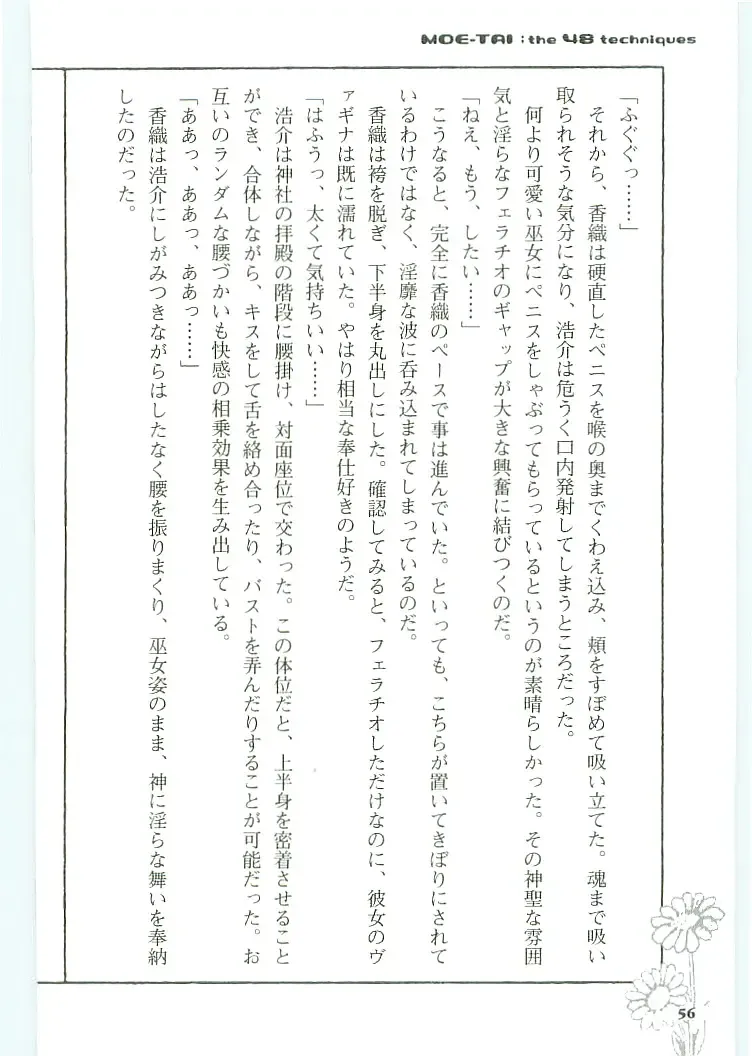 MOE-TAI : the 48 techniques
「ふぐぐっ……」
それから、香織は硬直したペニスを喉の奥までくわえ込み、頬をすぼめて吸い立てた。魂まで吸い
取られそうな気分になり、浩介は危うく口内発射してしまうところだった。
何より可愛い巫女にペニスをしゃぶってもらっているというのが素晴らしかった。その神聖な雰囲
気と淫らなフェラチオのギャップが大きな興奮に結びつくのだ。
「ねえ、もう、したい……」
こうなると、完全に香織のペースで事は進んでいた。といっても、こちらが置いてきぼりにされて
いるわけではなく、淫靡な波に呑み込まれてしまっているのだ。
香織は袴を脱ぎ、下半身を丸出しにした。確認してみると、フェラチオしただけなのに、彼女のヴ
ァギナは既に濡れていた。やはり相当な奉仕好きのようだ。
「はふうっ、太くて気持ちいい……」
浩介は神社の拝殿の階段に腰掛け、対面座位で交わった。この体位だと、上半身を密着させること
ができ、合体しながら、キスをして舌を絡め合ったり、バストを弄んだりすることが可能だった。お
互いのランダムな腰づかいも快感の相乗効果を生み出している。
「ああっ、ああっ、ああっ……」
香織は浩介にしがみつきながらはしたなく腰を振りまくり、巫女姿のまま、神に淫らな舞いを奉納
したのだった。
56